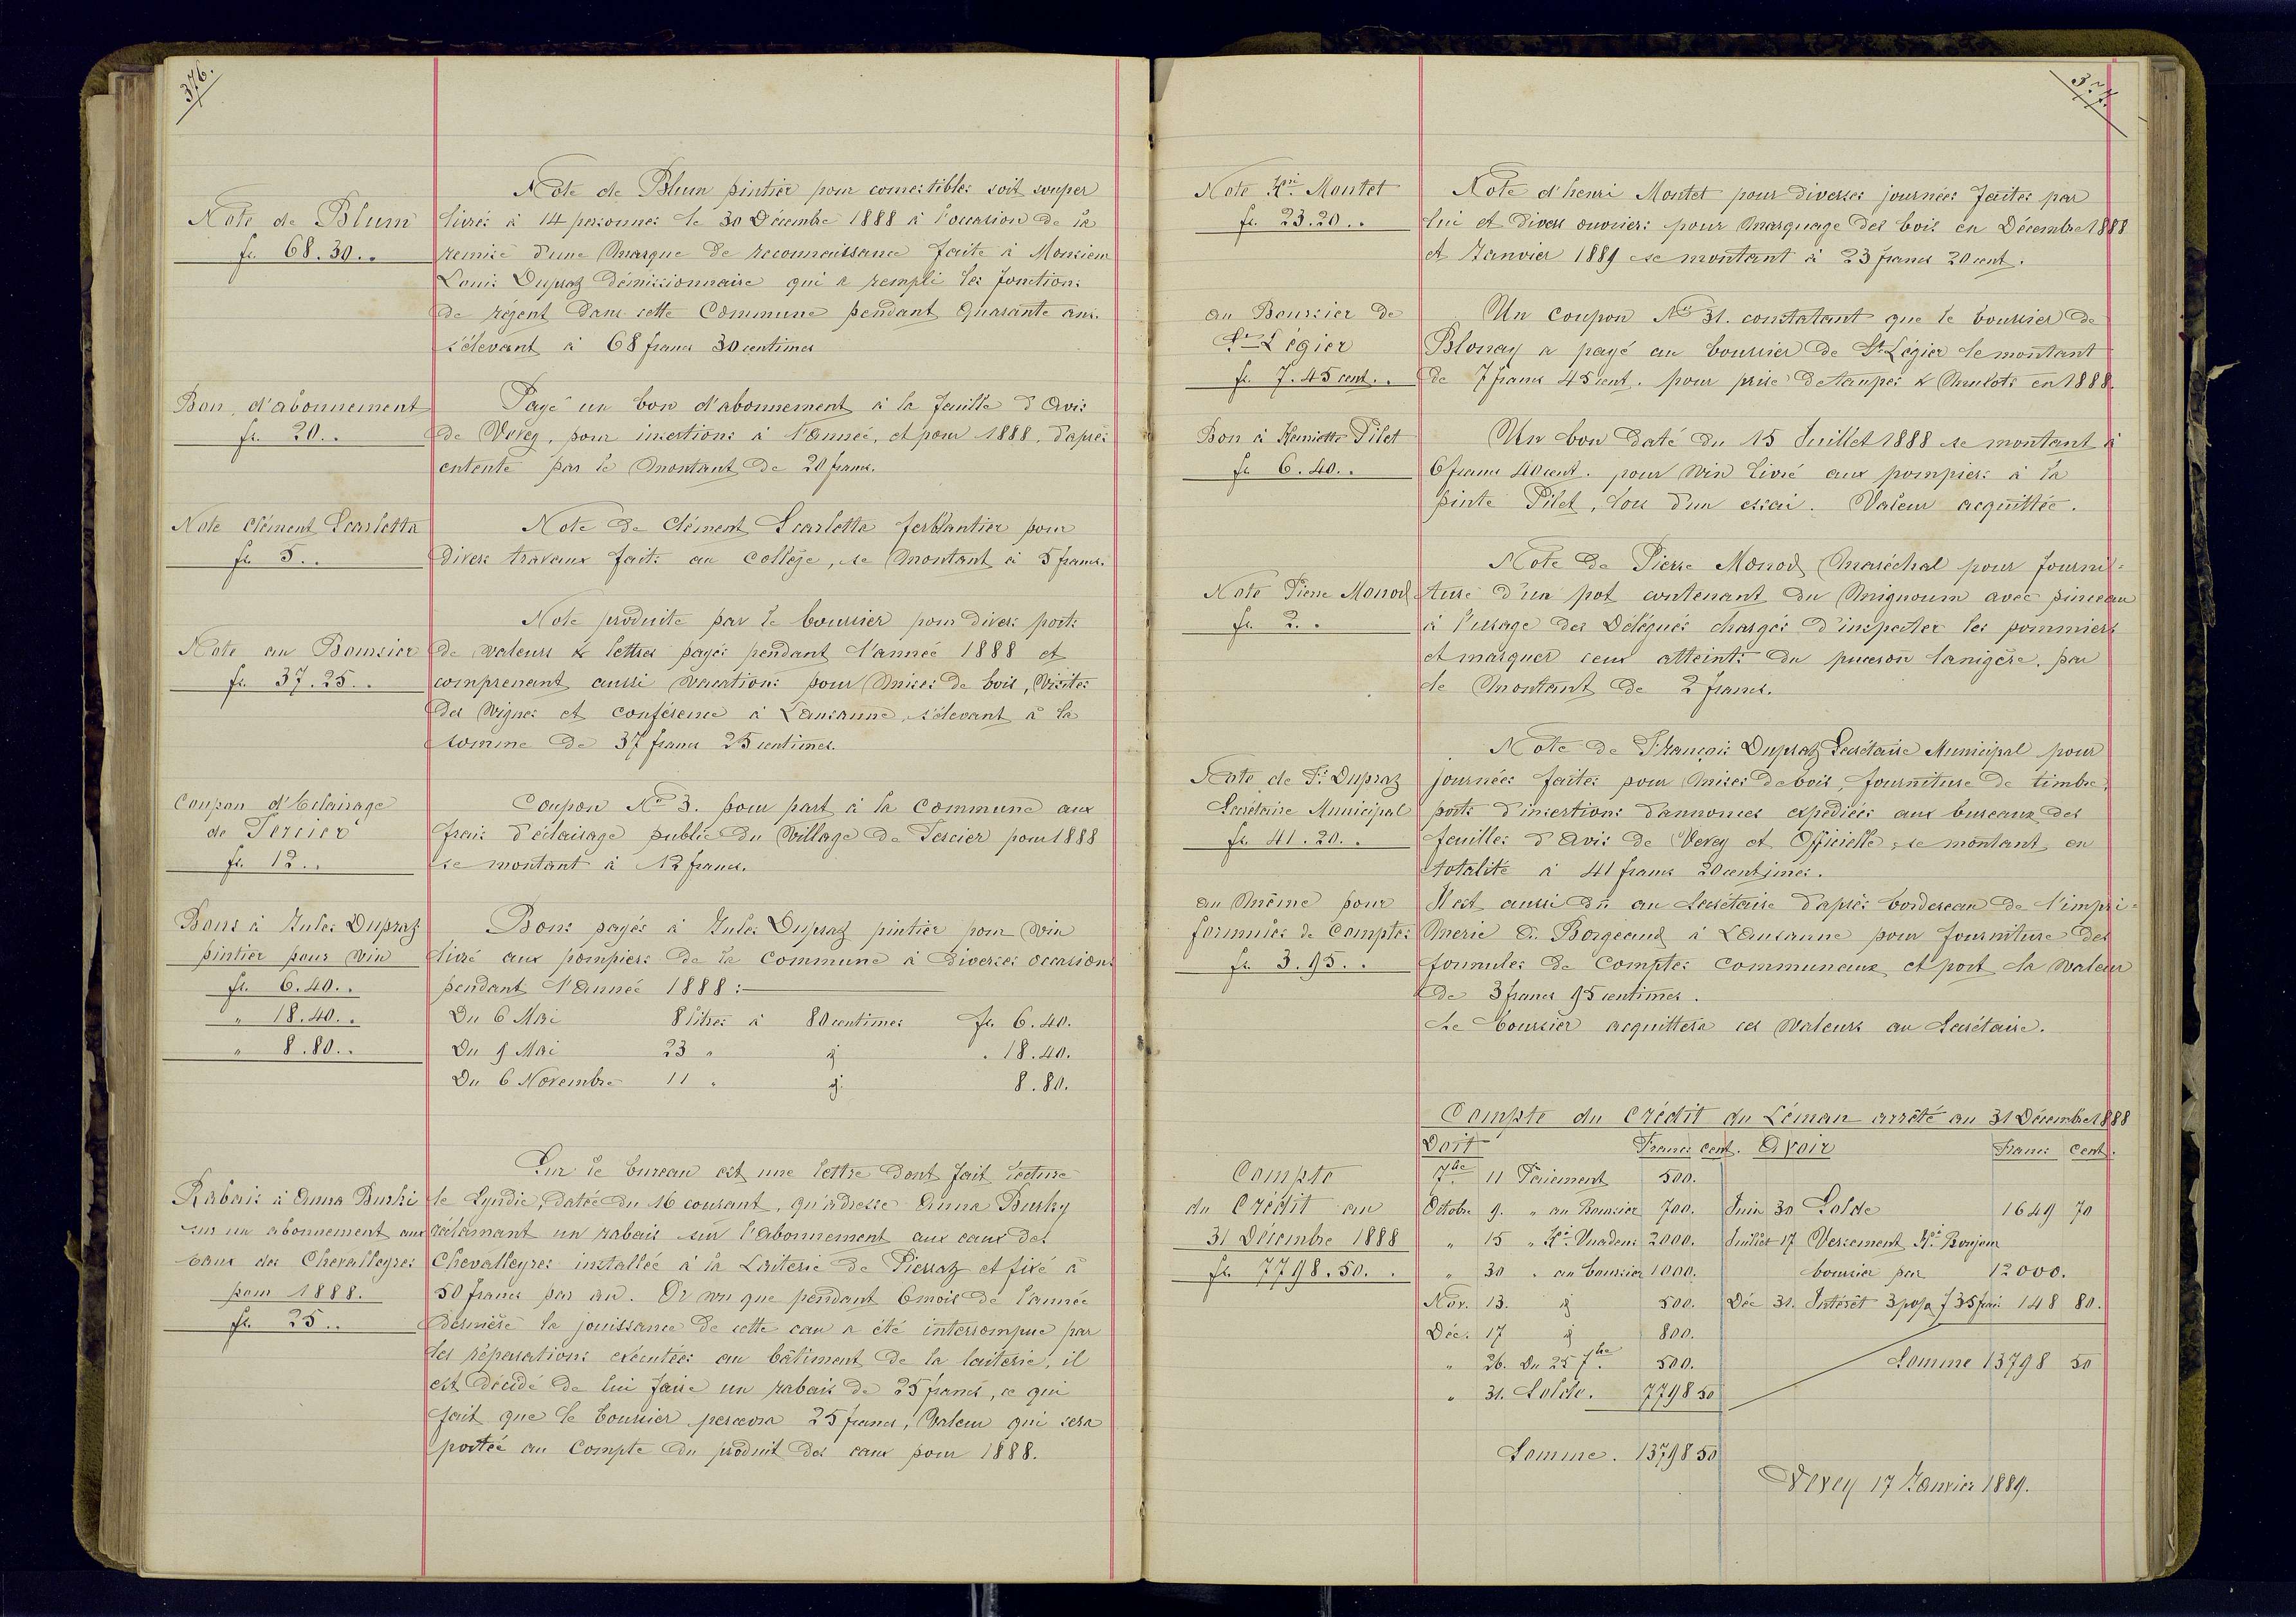 376.
Note de Blum
fr. 68.30..
Note de Blum pintier pour comestibles soit souper
livrés à 14 personnes le 30 Décembre 1888 à l'occasion de la
remise d'une Marque de reconnaissance faite à Monsieur
Louis Dupraz démissionnaire qui a rempli les fonctions
de régent dans cette Commune pendant Quarante ans.
s'élevant à 68 francs 30 centimes
Bon d'abonnement
fr. 20..
Payé un bon d'abonnement à la feuille d'Avis
de Vevey, pour insertions à l'Année, et pour 1888, d'après
entente par le Montant de 20 francs.
Note Clément Scarletta
fr. 5..
Note de Clément Scarletta ferblantier pour
divers travaux faits au Collège, se Montant à 5 francs.
Note au Boursier
fr. 37.25..
Note produite par le boursier pour divers ports
de valeurs & lettres payés pendant l'année 1888 et
comprenant aussi Vacations pour Mises de bois, Visites
des Vignes et conférence à Lausanne, s'élevant à la
somme de 37 francs 25 centimes.
Coupon d'Eclairage
de Tercier
fr. 12..
Coupon No 3. pour part à la Commune aux
frais d'éclairage public du Village de Tercier pour 1888
se montant à 12 francs.
Bons à Jules Dupraz
pintier pour Vin
fr. 6.40..
" 18.40..
" 8.80..
Bons payés à Jules Dupraz pintier pour Vin
livré aux pompiers de la Commune à diverses occasions
pendant l'Année 1888:
Du 6 Mai 8 litres à 80 centimes fr. 6.40.
Du 9 Mai 23 " " 18.40.
Du 6 Novembre 11 " 8.80.
Rabais à Anna Burki
sur un abonnement aux
eaux des Chevalleyres
pour 1888.
fr. 25..
Sur le bureau est une lettre dont fait lecture
le Syndic, datée du 16 courant, qu'adresse Anna Burky
réclamant un rabais sur l'Abonnement aux eaux des
Chevalleyres installée à la Laiterie de Pierraz et fixé à
50 francs par an. Or vu que pendant 6 mois de l'année
dernière la jouissance de cette eau a été interrompue par
les réparations exécutées au bâtiment de la laiterie, il
est décidé de lui faire un rabais de 25 francs, ce qui
fait que le boursier percevra 25 francs, Valeur qui sera
portée au Compte du produit des eaux pour 1888.
377.
Note Hri Montet
fr. 23.20..
Note d'henri Montet pour diverses journées faites par
lui et divers ouvriers pour Marquage des bois en Décembre 1888
et Janvier 1889 se montant à 23 francs 20 cent.
au Boursier de
St Légier
fr. 7.45 cent..
Un coupon No 31. constatant que le boursier de
Blonay a payé au boursier de St Légier le montant
de 7 francs 45 cent. pour prise de taupes & Mulots en 1888.
Bon à Henriette Pilet
fr. 6.40..
Un bon daté du 15 Juillet 1888 se montant à
6 francs 40 cent. pour Vin livré aux pompiers à la
pinte Pilet, lors d'un essai. Valeur acquittée.
Note Pierre Monod
fr. 2..
Note de Pierre Monod Maréchal pour fourni-
ture d'un pot contenant du Mignoum avec pinceau
à l'usage des Délégués chargés d'inspecter les pommiers
et marquer ceux atteints du puceron lanigère, par
le Montant de 2 francs.
Note de Fs Dupraz
Secrétaire Municipal
fr. 41.20..
Note de François Dupraz Secrétaire Municipal pour
journées faites pour Mises de bois, fourniture de timbres,
ports d'insertions d'annonces expédiées aux bureaux des
feuilles d'Avis de Vevey et Officielle, se montant en
totalité à 41 francs 20 centimes.
au même pour
formules de Comptes
fr. 3.95..
Il est aussi dû au Secrétaire d'après bordereau de l'impri-
merie A. Borgeaud à Lausanne pour fourniture des
formules de Comptes Communaux et port la Valeur
de 3 francs 95 centimes.
Le boursier acquittera ces Valeurs au Secrétaire.
Compte
du Crédit au
31 Décembre 1888
fr. 7798.50..
Compte du Crédit du Léman arrêté au 31 Décembre 1888
Doit Francs cent. Avoir Francs Cent.
7bre 11 Paiement 500.
Octobre 9. " au Boursier 700. Juin 30 Solde 1649 70
" 15 " Hri Vuadens 2000. Juillet 17 Versement Hri Bonjour
" 30 " au boursier 1000. boursier par 12000.
Nov. 13. 500. Déc 31. Intérêt 148 80.
Déc. 17 800.
" 26. Du 25 7bre 500. Somme 13798 50
" 31. Solde. 7798 50
Somme. 13798 50
Vevey 17 Janvier 1889.